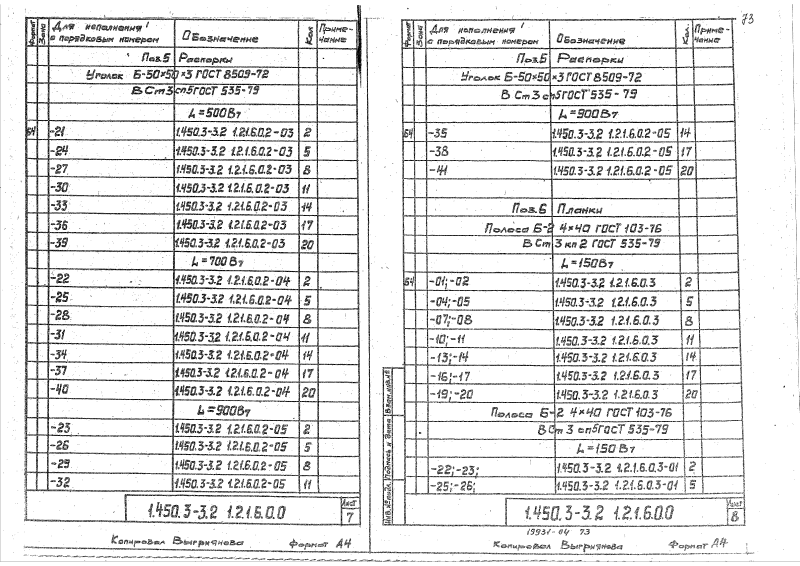 Формат Зона Для исполнения с порядковым номером Обозначение Кол Приме-чание
Поз.5 Распорки
Уголок Б-50×50×3 ГОСТ 8509-72
В Ст3сп5 ГОСТ 535-79
L=500 Вт
Б4 -21 1.450.3-3.2 1.2.1.6.0.2-03 2
-24 1.450.3-3.2 1.2.1.6.0.2-03 5
-27 1.450.3-3.2 1.2.1.6.0.2-03 8
-30 1.450.3-3.2 1.2.1.6.0.2-03 11
-33 1.450.3-3.2 1.2.1.6.0.2-03 14
-36 1.450.3-3.2 1.2.1.6.0.2-03 17
-39 1.450.3-3.2 1.2.1.6.0.2-03 20
L=700 Вт
-22 1.450.3-3.2 1.2.1.6.0.2-04 2
-25 1.450.3-3.2 1.2.1.6.0.2-04 5
-28 1.450.3-3.2 1.2.1.6.0.2-04 8
-31 1.450.3-3.2 1.2.1.6.0.2-04 11
-34 1.450.3-3.2 1.2.1.6.0.2-04 14
-37 1.450.3-3.2 1.2.1.6.0.2-04 17
-40 1.450.3-3.2 1.2.1.6.0.2-04 20
L=900 Вт
-23 1.450.3-3.2 1.2.1.6.0.2-05 2
-26 1.450.3-3.2 1.2.1.6.0.2-05 5
-29 1.450.3-3.2 1.2.1.6.0.2-05 8
-32 1.450.3-3.2 1.2.1.6.0.2-05 11
1.450.3-3.2 1.2.1.6.0.0 Лист 7
Копировал Выгриянова Формат А4
73
Формат Зона Для исполнения с порядковым номером Обозначение Кол. Приме-чание
Поз.5 Распорки
Уголок Б-50×50×3 ГОСТ 8509-72
В Ст3сп5 ГОСТ 535-79
L=900 Вт
Б4 -35 1.450.3-3.2 1.2.1.6.0.2-05 14
-38 1.450.3-3.2 1.2.1.6.0.2-05 17
-41 1.450.3-3.2 1.2.1.6.0.2-05 20
Поз.6 Планки
Полоса Б-2 4×40 ГОСТ 103-76
В Ст3кп2 ГОСТ 535-79
L=150 Вт
Б4 -01;-02 1.450.3-3.2 1.2.1.6.0.3 2
-04;-05 1.450.3-3.2 1.2.1.6.0.3 5
-07;-08 1.450.3-3.2 1.2.1.6.0.3 8
-10;-11 1.450.3-3.2 1.2.1.6.0.3 11
-13;-14 1.450.3-3.2 1.2.1.6.0.3 14
-16;-17 1.450.3-3.2 1.2.1.6.0.3 17
-19;-20 1.450.3-3.2 1.2.1.6.0.3 20
Полоса Б-2 4×40 ГОСТ 103-76
В Ст3сп5 ГОСТ 535-79
L=150 Вт
-22;-23; 1.450.3-3.2 1.2.1.6.0.3-01 2
-25;-26; 1.450.3-3.2 1.2.1.6.0.3-01 5
Инв.№подл. Подпись и дата Взам.инв.№
1.450.3-3.2 1.2.1.6.0.0 Лист 8
19931-04 73
Копировал Выгриянова Формат А4